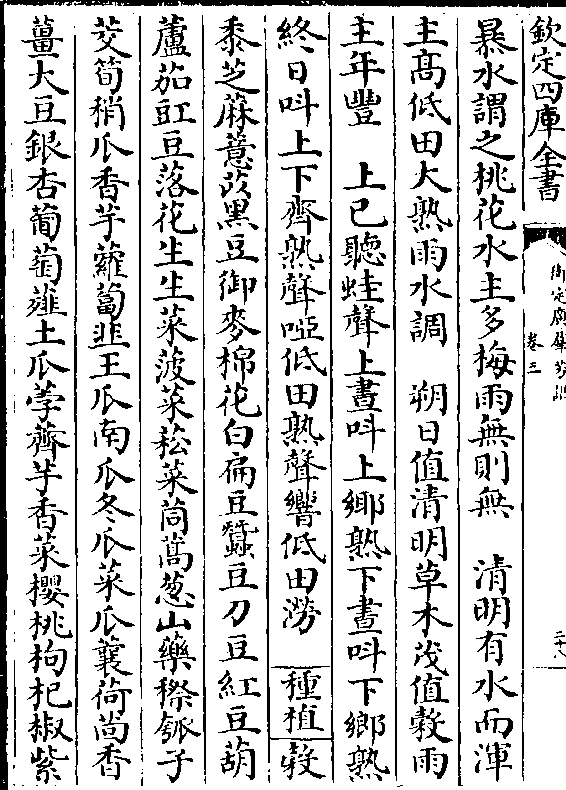 欽定四庫全書
御定月令輯要
卷三
三十八
暴水謂之桃花水主多梅雨無則無　清明有水而渾
主髙低田大熟雨水調　朔日值清明草木茂值穀雨
主年豐　上巳聽蛙聲上晝呌上鄉熟下晝呌下鄉熟
終日呌上下齊熟聲啞低田熟聲響低田澇　種植　穀
黍芝蔴薏苡黑豆御麥棉花白扁豆蠶豆刀豆紅豆葫
蘆茄豇豆落花生生菜菠菜菘菜茼蒿葱山藥穄瓠子
茭筍稍瓜香芋蘿蔔韭王瓜南瓜冬瓜菜瓜蘘荷茴香
薑大豆銀杏葡萄薤土瓜荸薺芋香菜櫻桃枸杞椒紫